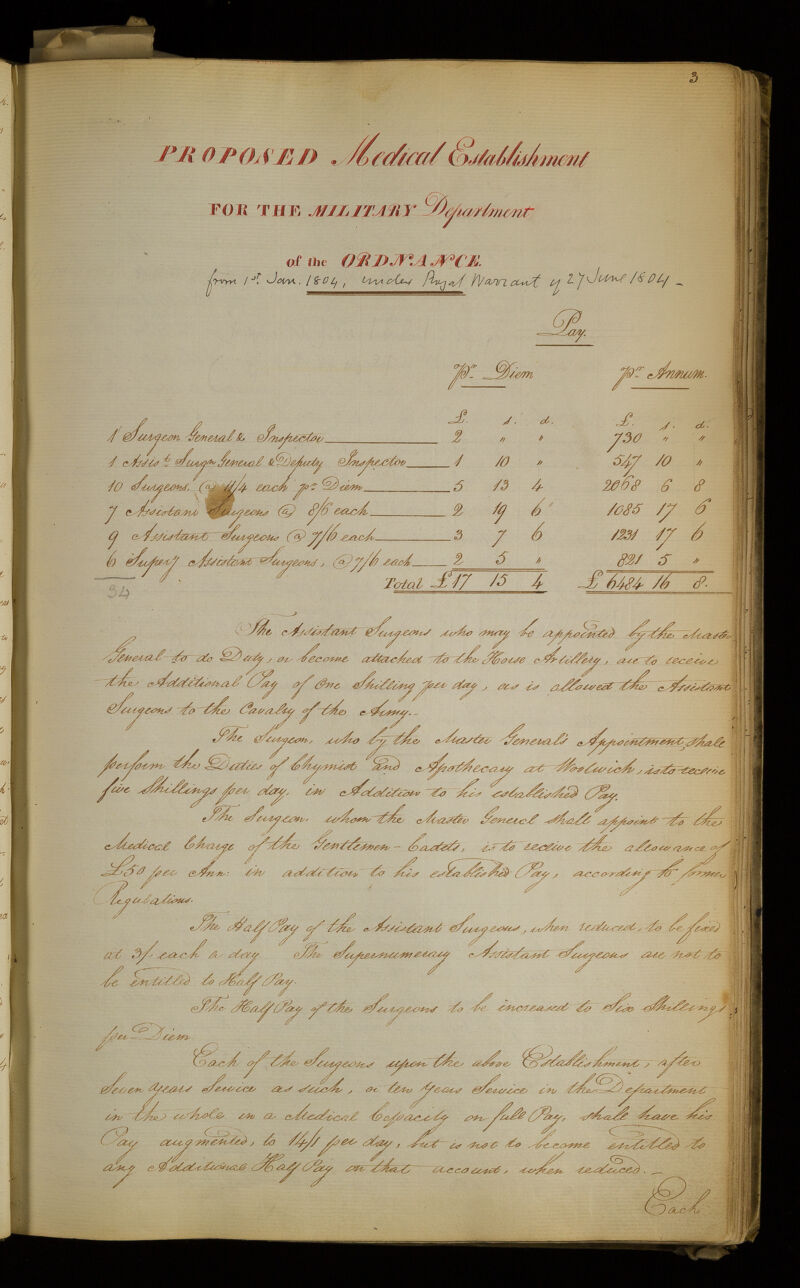 3
PROPOSED Medical Establishment
FOR THE MILITARY Department
of the ORDNANCE.
from 1st Jan. 1804, under Royal Warrant of 27 June 1804 -
Pay.
pr Diem pr Annum.
£. s. d. £. s. d.
1 Surgeon General & Inspector 2 " " 730 " "
1 Assist. Surgn General & Deputy Inspector 1 10 " 547 10 "
10 Surgeons @ 11/4 each pr Diem 5 13 4 2068 6 8
7 Assistant Surgeons @ 8/6 each 2 19 6 1085 17 6
9 Assistant Surgeons @ 7/6 each 3 7 6 1231 17 6
6 Supery Assistant Surgeons, @ 7/6 each 2 5 " 821 5 "
34 Total £17 15 4 £6484 16 8.
The Assistant Surgeons who may be appointed by the Master
General to do Duty, or become attached to the Horse Artillery, are to receive
the Additional Pay of One Shilling per day, as is allowed the Assistant
Surgeons to the Cavalry of the Army.
The Surgeon, who by the Master General's Appointment, shall
perform the Duties of Chymist and Apothecary at Woolwich, is to receive
five Shillings per day, in Addition to his established Pay.
The Surgeon whom the Master General shall appoint to the
Medical Charge of the Gentlemen-Cadets, is to receive the allowance of
£50 per Ann: in addition to his established Pay, according to former
Regulations.
The Half Pay of the Assistant Surgeons, when reduced, to be fixed
at 3/ each a day The Supernumerary Assistant Surgeons are not to
be entitled to Half Pay.
The Half Pay of the Surgeons to be increased to Six Shillings
per Diem.
Each of the Surgeons upon the above Establishment, after
Seven Years Service as such, or ten Years Service in the Department
in the whole in a Medical Capacity on full Pay, shall have his
Pay augmented, to 14/1 per day, but is not to become entitled to
any Additional Half Pay on that account, when reduced.-
Each